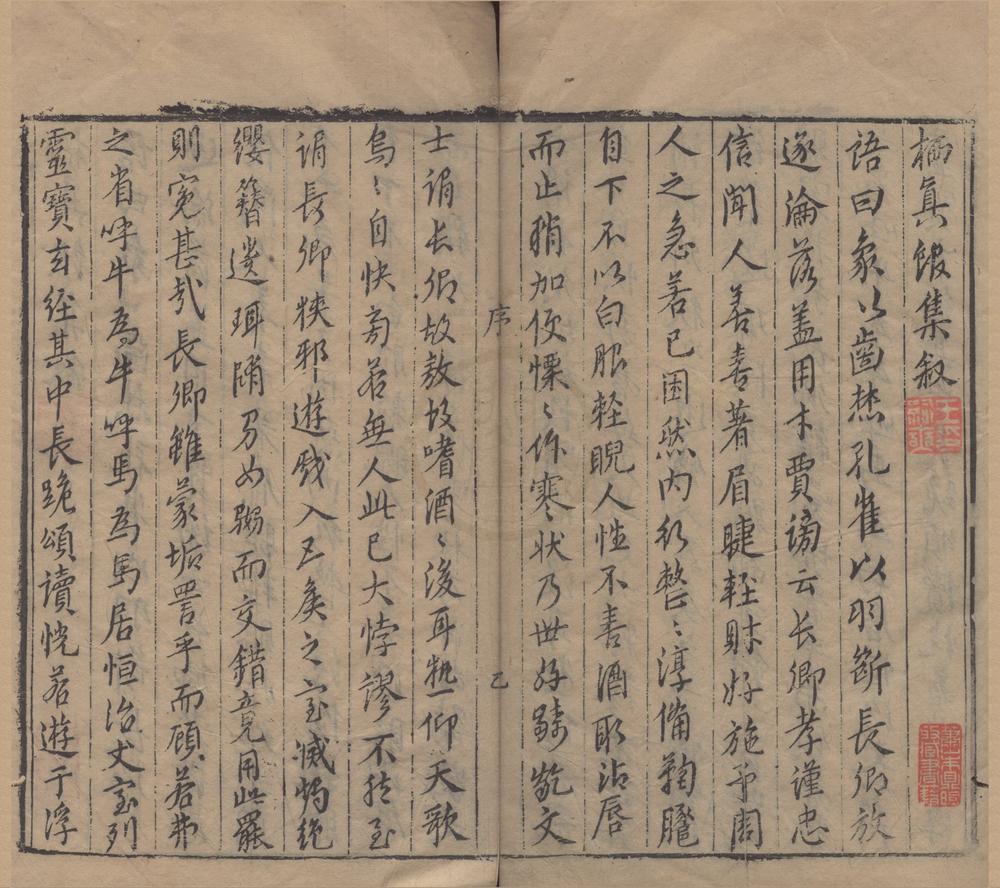 栖真館集叙
語曰象以齒焚孔雀以羽斷長卿放
逐淪落蓋用才賈謫云长卿孝謹忠
信聞人善喜著眉睫輕財好施予周
人之急若已困然内行整〻淳備鞠䠆
自下不以白眼輕睨人性不善酒取沾唇
而止稍加便慄〻作寒〻状乃世好齮齕文
序
乙
士謂长卿故敖故嗜酒〻後耳熱仰天歌
烏〻自快旁若無人此已大悖謬不經至
謂長卿狹邪遊戲入五矦之室滅燭絶
纓簪遺珥墮男女溺而交錯竟用此罷
則寃甚哉長卿雖蒙垢詈乎而頋若弗
之省呼牛為牛呼馬為馬居恒治丈室列
靈寶玄経其中長跪頌讀恍若遊于浮